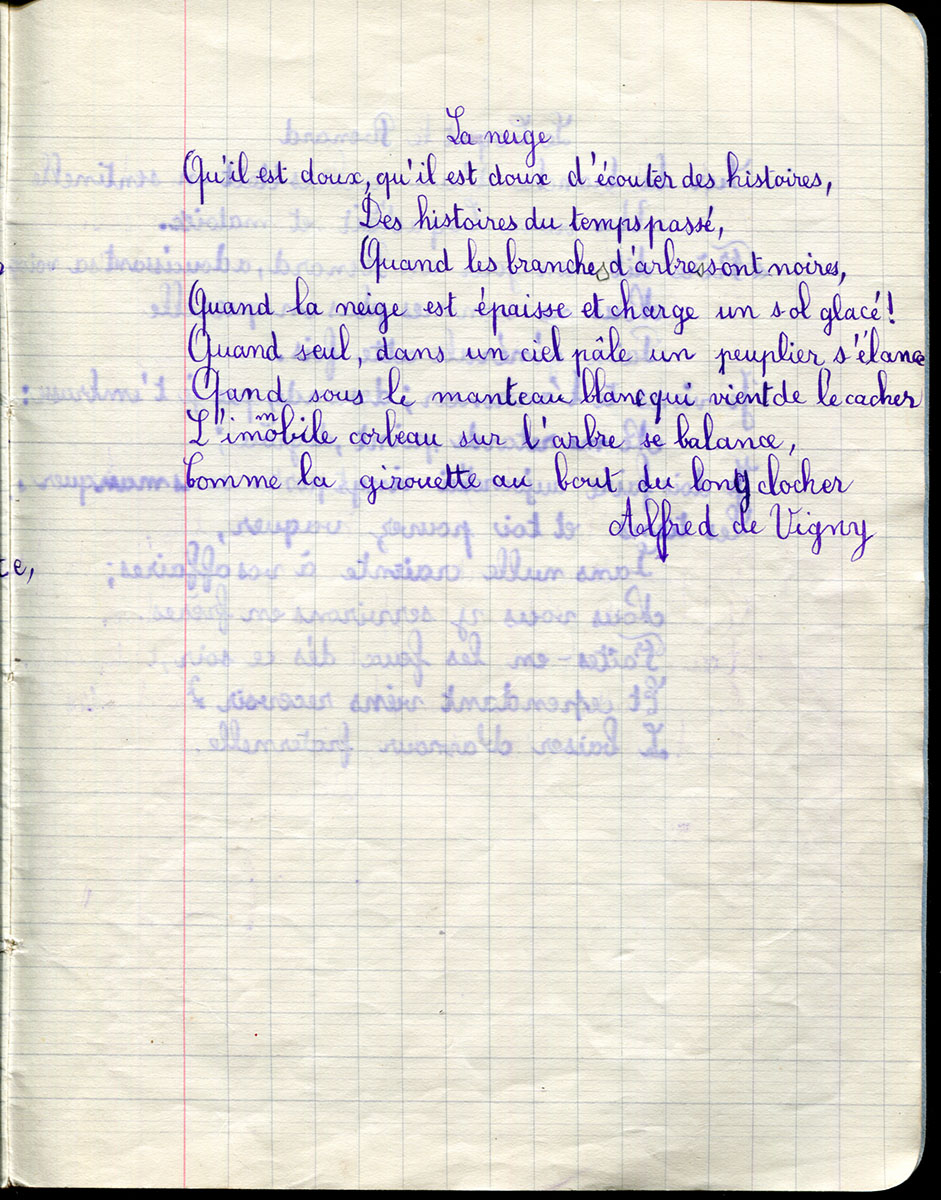 La neige
Qu'il est doux, qu'il est doux d'écouter des histoires,
Des histoires du temps passé,
Quand les branches d'arbres sont noires,
Quand la neige est épaisse et charge un sol glacé!
Quand seul, dans un ciel pâle un peuplier s'élance
Qand sous le manteau blanc qui vient de le cacher
L'immobile corbeau sur l'arbre se balance,
Comme la girouette au bout du long clocher
Alfred de Vigny
te,